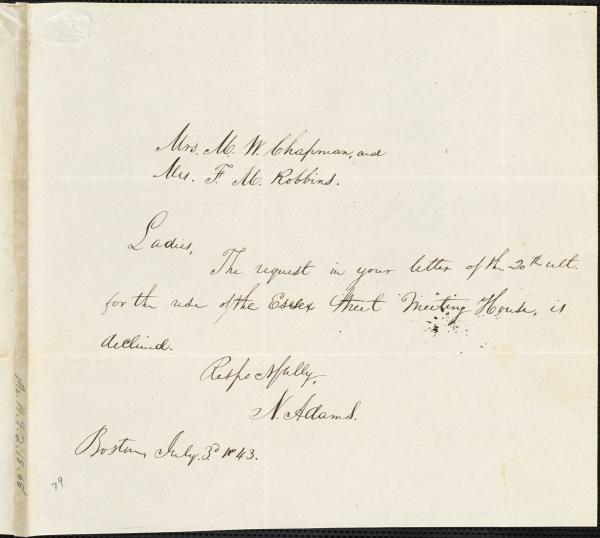 Mrs. M. W. Chapman, and
Mrs. F. M. Robbins.
Ladies,
The request in your letter of the 20th ult.
for the use of the Essex Street Meeting House, is
declined.
Respectfully,
N. Adams.
Boston, July. 3d 1843.
79
Ms. A. 9. 2. 18. 68